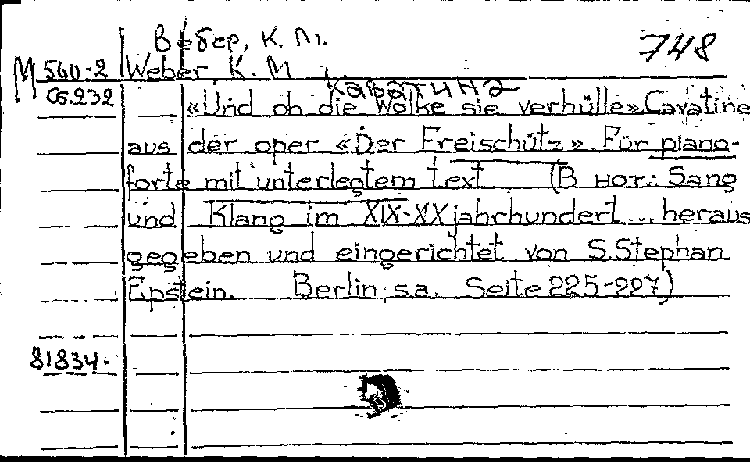 Вебер, К. М.
748
М 560-2 Weber, K. M.
Каватина
Сб.232 «Und ob die Wolke sie verhülle» Cavatine
aus der oper «Der Freischütz». Für piano-
forte mit unterlegtem text (В нот.: Sang
und Klang im XIX-XX jahrhundert... heraus
gegeben und eingerichtet von S. Stephan
Epstein. Berlin, s.a. Seite 225-227)
81834.